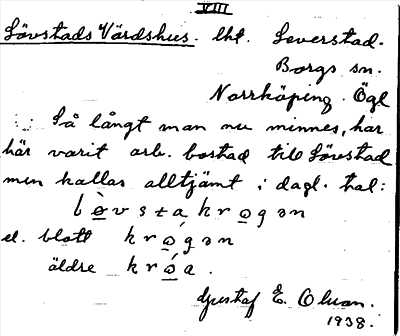 VIII
Lövstads Värdshus. lht. Leverstad.
Borgs sn.
Norrköping. Ögl
Så långt man nu minnes, har
här varit arb. bostad till Lövstad
men kallas alltjämt i dagl. tal:
l ø̀ v s t a k r o g ə n
el. blott k r ó g ə n
äldre k r ó a .
Gustaf E. Olsson.
1938.